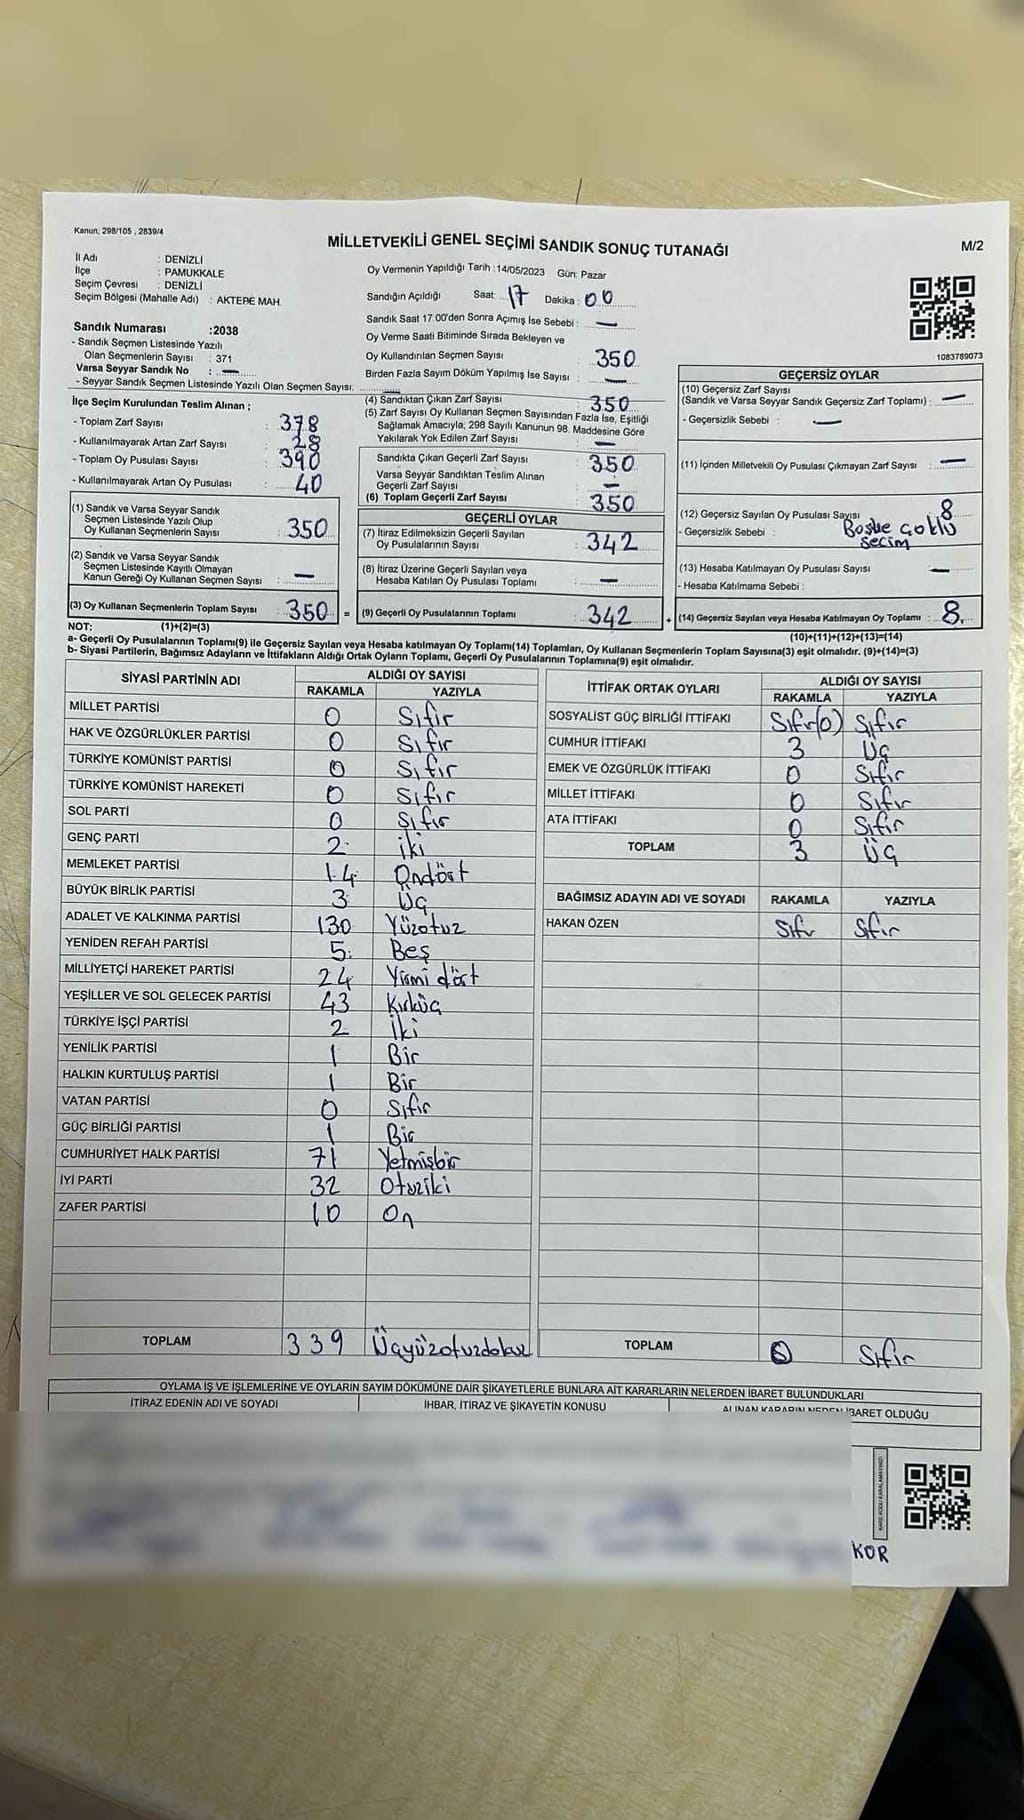 Kanun: 298/105 , 2839/4
MİLLETVEKİLİ GENEL SEÇİMİ SANDIK SONUÇ TUTANAĞI
M/2
İl Adı : DENİZLİ
İlçe : PAMUKKALE
Seçim Çevresi : DENİZLİ
Seçim Bölgesi (Mahalle Adı) : AKTEPE MAH.
Sandık Numarası :2038
- Sandık Seçmen Listesinde Yazılı
Olan Seçmenlerin Sayısı : 371
Varsa Seyyar Sandık No : —
- Seyyar Sandık Seçmen Listesinde Yazılı Olan Seçmen Sayısı:
Oy Vermenin Yapıldığı Tarih :14/05/2023 Gün: Pazar
Sandığın Açıldığı Saat: 17 Dakika : 00
Sandık Saat 17:00'den Sonra Açımış İse Sebebi : —
Oy Verme Saati Bitiminde Sırada Bekleyen ve
Oy Kullandırılan Seçmen Sayısı : 350
Birden Fazla Sayım Döküm Yapılmış İse Sayısı : —
1083789073
İlçe Seçim Kurulundan Teslim Alınan ;
- Toplam Zarf Sayısı : 378
- Kullanılmayarak Artan Zarf Sayısı : 28
- Toplam Oy Pusulası Sayısı : 390
- Kullanılmayarak Artan Oy Pusulası : 40
(1) Sandık ve Varsa Seyyar Sandık
Seçmen Listesinde Yazılı Olup
Oy Kullanan Seçmenlerin Sayısı : 350
(2) Sandık ve Varsa Seyyar Sandık
Seçmen Listesinde Kayıtlı Olmayan
Kanun Gereği Oy Kullanan Seçmen Sayısı : —
(3) Oy Kullanan Seçmenlerin Toplam Sayısı : 350 =
(4) Sandıktan Çıkan Zarf Sayısı : 350
(5) Zarf Sayısı Oy Kullanan Seçmen Sayısından Fazla İse, Eşitliği
Sağlamak Amacıyla, 298 Sayılı Kanunun 98. Maddesine Göre
Yakılarak Yok Edilen Zarf Sayısı : —
Sandıkta Çıkan Geçerli Zarf Sayısı : 350
Varsa Seyyar Sandıktan Teslim Alınan
Geçerli Zarf Sayısı : —
(6) Toplam Geçerli Zarf Sayısı : 350
GEÇERLİ OYLAR
(7) İtiraz Edilmeksizin Geçerli Sayılan
Oy Pusulalarının Sayısı : 342
(8) İtiraz Üzerine Geçerli Sayılan veya
Hesaba Katılan Oy Pusulası Toplamı : —
(9) Geçerli Oy Pusulalarının Toplamı : 342 +
GEÇERSİZ OYLAR
(10) Geçersiz Zarf Sayısı
(Sandık ve Varsa Seyyar Sandık Geçersiz Zarf Toplamı) : —
- Geçersizlik Sebebi : —
(11) İçinden Milletvekili Oy Pusulası Çıkmayan Zarf Sayısı : —
(12) Geçersiz Sayılan Oy Pusulası Sayısı : 8
- Geçersizlik Sebebi : çoklu
seçim
(13) Hesaba Katılmayan Oy Pusulası Sayısı : —
- Hesaba Katılmama Sebebi :
(14) Geçersiz Sayılan veya Hesaba Katılmayan Oy Toplamı : 8
NOT: (1)+(2)=(3) (10)+(11)+(12)+(13)=(14)
a- Geçerli Oy Pusulalarının Toplamı(9) ile Geçersiz Sayılan veya Hesaba katılmayan Oy Toplamı(14) Toplamları, Oy Kullanan Seçmenlerin Toplam Sayısına(3) eşit olmalıdır. (9)+(14)=(3)
b- Siyasi Partilerin, Bağımsız Adayların ve İttifakların Aldığı Ortak Oyların Toplamı, Geçerli Oy Pusulalarının Toplamına(9) eşit olmalıdır.
SİYASİ PARTİNİN ADI ALDIĞI OY SAYISI
RAKAMLA YAZIYLA
MİLLET PARTİSİ 0 Sıfır
HAK VE ÖZGÜRLÜKLER PARTİSİ 0 Sıfır
TÜRKİYE KOMÜNİST PARTİSİ 0 Sıfır
TÜRKİYE KOMÜNİST HAREKETİ 0 Sıfır
SOL PARTİ 0 Sıfır
GENÇ PARTİ 2 İki
MEMLEKET PARTİSİ 14 Ondört
BÜYÜK BİRLİK PARTİSİ 3 Üç
ADALET VE KALKINMA PARTİSİ 130 Yüzotuz
YENİDEN REFAH PARTİSİ 5 Beş
MİLLİYETÇİ HAREKET PARTİSİ 24 Yirmi dört
YEŞİLLER VE SOL GELECEK PARTİSİ 43 Kırküç
TÜRKİYE İŞÇİ PARTİSİ 2 İki
YENİLİK PARTİSİ 1 Bir
HALKIN KURTULUŞ PARTİSİ 1 Bir
VATAN PARTİSİ 0 Sıfır
GÜÇ BİRLİĞİ PARTİSİ 1 Bir
CUMHURİYET HALK PARTİSİ 71 Yetmişbir
İYİ PARTİ 32 Otuziki
ZAFER PARTİSİ 10 On
TOPLAM 339 Üçyüzotuzdokuz
İTTİFAK ORTAK OYLARI ALDIĞI OY SAYISI
RAKAMLA YAZIYLA
SOSYALİST GÜÇ BİRLİĞİ İTTİFAKI Sıfır(0) Sıfır
CUMHUR İTTİFAKI 3 Üç
EMEK VE ÖZGÜRLÜK İTTİFAKI 0 Sıfır
MİLLET İTTİFAKI 0 Sıfır
ATA İTTİFAKI 0 Sıfır
TOPLAM 3 Üç
BAĞIMSIZ ADAYIN ADI VE SOYADI RAKAMLA YAZIYLA
HAKAN ÖZEN Sıfır Sıfır
TOPLAM 0 Sıfır
OYLAMA İŞ VE İŞLEMLERİNE VE OYLARIN SAYIM DÖKÜMÜNE DAİR ŞİKAYETLERLE BUNLARA AİT KARARLARIN NELERDEN İBARET BULUNDUKLARI
İTİRAZ EDENİN ADI VE SOYADI İHBAR, İTİRAZ VE ŞİKAYETİN KONUSU ALINAN KARARIN NEDEN İBARET OLDUĞU
KOR